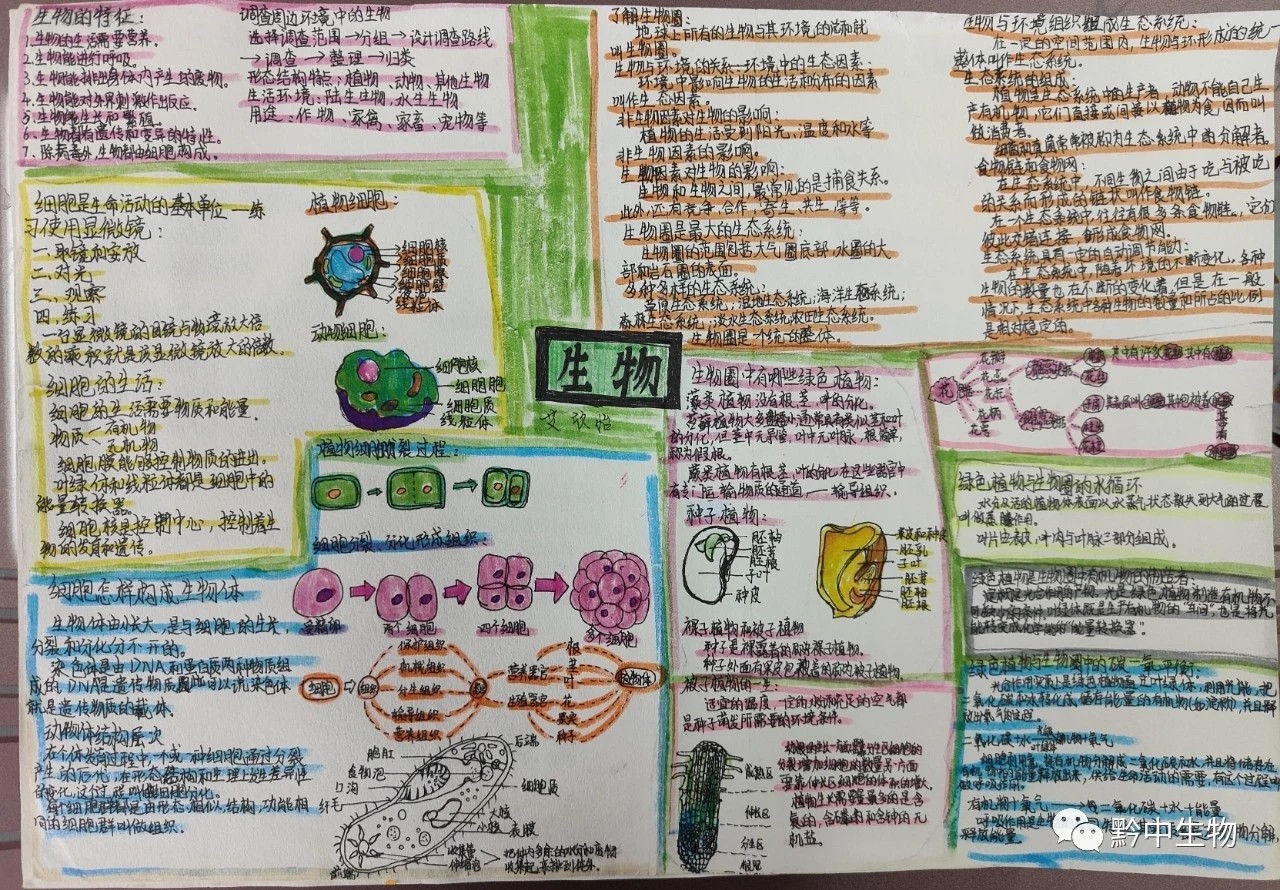 生物的特征:
1.生物的生活需要营养。
2.生物能进行呼吸。
3.生物能排出身体内产生的废物。
4.生物能对外界刺激作出反应。
5.生物能生长和繁殖。
6.生物都有遗传和变异的特性。
7.除病毒外,生物都由细胞构成。
调查周边环境中的生物
选择调查范围→分组→设计调查路线
→调查→整理→归类
形态结构特点:植物、动物、其他生物
生活环境:陆生生物、水生生物
用途:作物、家禽、家畜、宠物等
了解生物圈:
地球上所有的生物与其环境的总和就
叫生物圈
生物与环境的关系—环境中的生态因素:
环境中影响生物的生活和分布的因素
叫作生态因素。
非生物因素对生物的影响:
植物的生活受到阳光、温度和水等
非生物因素的影响。
生物因素对生物的影响:
生物和生物之间,最常见的是捕食关系。
此外,还有竞争,合作,寄生,共生等等。
生物圈是最大的生态系统:
生物圈的范围包括大气圈底部,水圈的大
部和岩石圈的表面。
多种多样的生态系统:
草原生态系统,湿地生态系统,海洋生态系统;
森林生态系统;淡水生态系统农田生态系统。
生物圈是一个统一的整体。
生物与环境组织组成生态系统:
在一定的空间范围内,生物与环形成的统一
整体叫作生态系统。
生态系统的组成
植物是生态系统中的生产者,动物不能自己生
产有机物,它们直接或间接以植物为食,因而叫
做消费者。
细菌和真菌常常被称为生态系统中的分解者。
食物链和食物网:
在生态系统中,不同生物之间由于吃与被吃
的关系而形成的链状叫作食物链。
在一个生态系统中,往往有很多条食物链,它们
彼此交错连接,形成食物网。
生态系统具有一定的自动调节能力:
在生态系统中,随着环境的不断变化,各种
生物的数量也在不断的变化着,但是在一般
情况下,生态系统中各种生物的数量和所占的比例
是相对稳定的。
细胞是生命活动的基本单位—练
习使用显微镜:
一.取镜和安放
二.对光
三.观察
四.练习
一台显微镜的目镜与物镜放大倍
数的乘积就是该显微镜放大的倍数。
细胞的生活:
细胞的生活需要物质和能量。
物质—有机物
无机物
细胞膜能够控制物质的进出。
叶绿体和线粒体都是细胞中的
能量转换器。
细胞核是控制中心,控制着生
物的发育和遗传。
植物细胞:
细胞核
细胞质
细胞膜
细胞壁
线粒体
动物细胞:
细胞核
细胞膜
细胞质
线粒体
生物
艾欣怡
植物细胞分裂过程:
细胞分裂、分化形成组织:
受精卵
两个细胞
四个细胞
多个细胞
细胞
保护组织
机械组织
分生组织
输导组织
营养组织
营养器官
生殖器官
根
茎
叶
花
果实
种子
植物体
细胞怎样构成生物体
生物体由小长大,是与细胞的生长,
分裂和分化分不开的。
染色体是由DNA和蛋白质两种物质组
成的,DNA是遗传物质,可以说染色体
就是遗传物质的载体。
动物体结构层次
在个体发育过程中,一个或一种细胞通过分裂
产生的后代,在形态,结构和生理上发生差异性
的变化,这个过程叫做细胞分化。
每个细胞群都是由形态相似,结构,功能相
同的细胞群叫做组织。
胞肛
食物泡
口沟
纤毛
后端
细胞质
大核
小核
表膜
收集管
伸缩泡
把体内多余的水分和废物
收集起来排到体外。
前端
生物圈中有哪些绿色植物:
藻类植物没有根、茎、叶的分化。
苔藓植物大多矮小,通常具有类似茎和叶
的分化,但茎中无导管,叶中无叶脉,根简单,
称为假根。
蕨类植物有根、茎、叶的分化,在这些器官中
有专门运输物质的通道——输导组织。
种子植物:
胚轴
胚芽
胚根
子叶
种皮
果皮和种皮
胚乳
子叶
胚芽
胚轴
胚根
裸子植物和被子植物
种子是裸露着的,称为裸子植物。
种子外面有果皮包被着的,称为被子植物。
被子植物的一生:
适宜的温度,一定的水分和充足的空气都
是种子萌发所需要的环境条件。
成熟区
伸长区
分生区
根冠
幼根的生长一方面靠分生区细胞的
分裂增加细胞的数量,另一方面
要靠伸长区细胞的体积的增大。
植物生长需要量最多的是含
氮的,含磷的和含钾的无
机盐。
花
花瓣
花萼
花托
花柄
绿色植物与生物圈的水循环
水分从活的植物体表面以水蒸气状态散失到大气的过程
叫做蒸腾作用。
叶片由表皮,叶肉与叶脉三部分组成。
绿色植物是生物圈中有机物的制造者:
淀粉是光合作用的产物,光是绿色植物制造有机物不
可缺少的条件,叶绿体既是生产有机物的“车间”,也是将光
能转变成化学能的“能量转换器”。
绿色植物与生物圈中的碳—氧平衡:
光合作用实质上是绿色植物通过叶绿体,利用光能,把
二氧化碳和水转化成储存能量的有机物(如淀粉),并且释
放出氧气的过程。
二氧化碳+水→有机物+氧气
细胞利用氧,将有机物分解成二氧化碳和水,并且将储存在
有机物中的能量释放出来,供给生命活动的需要,有这个过程叫
做呼吸作用。
有机物+氧气→二氧化碳+水+能量
黔中生物